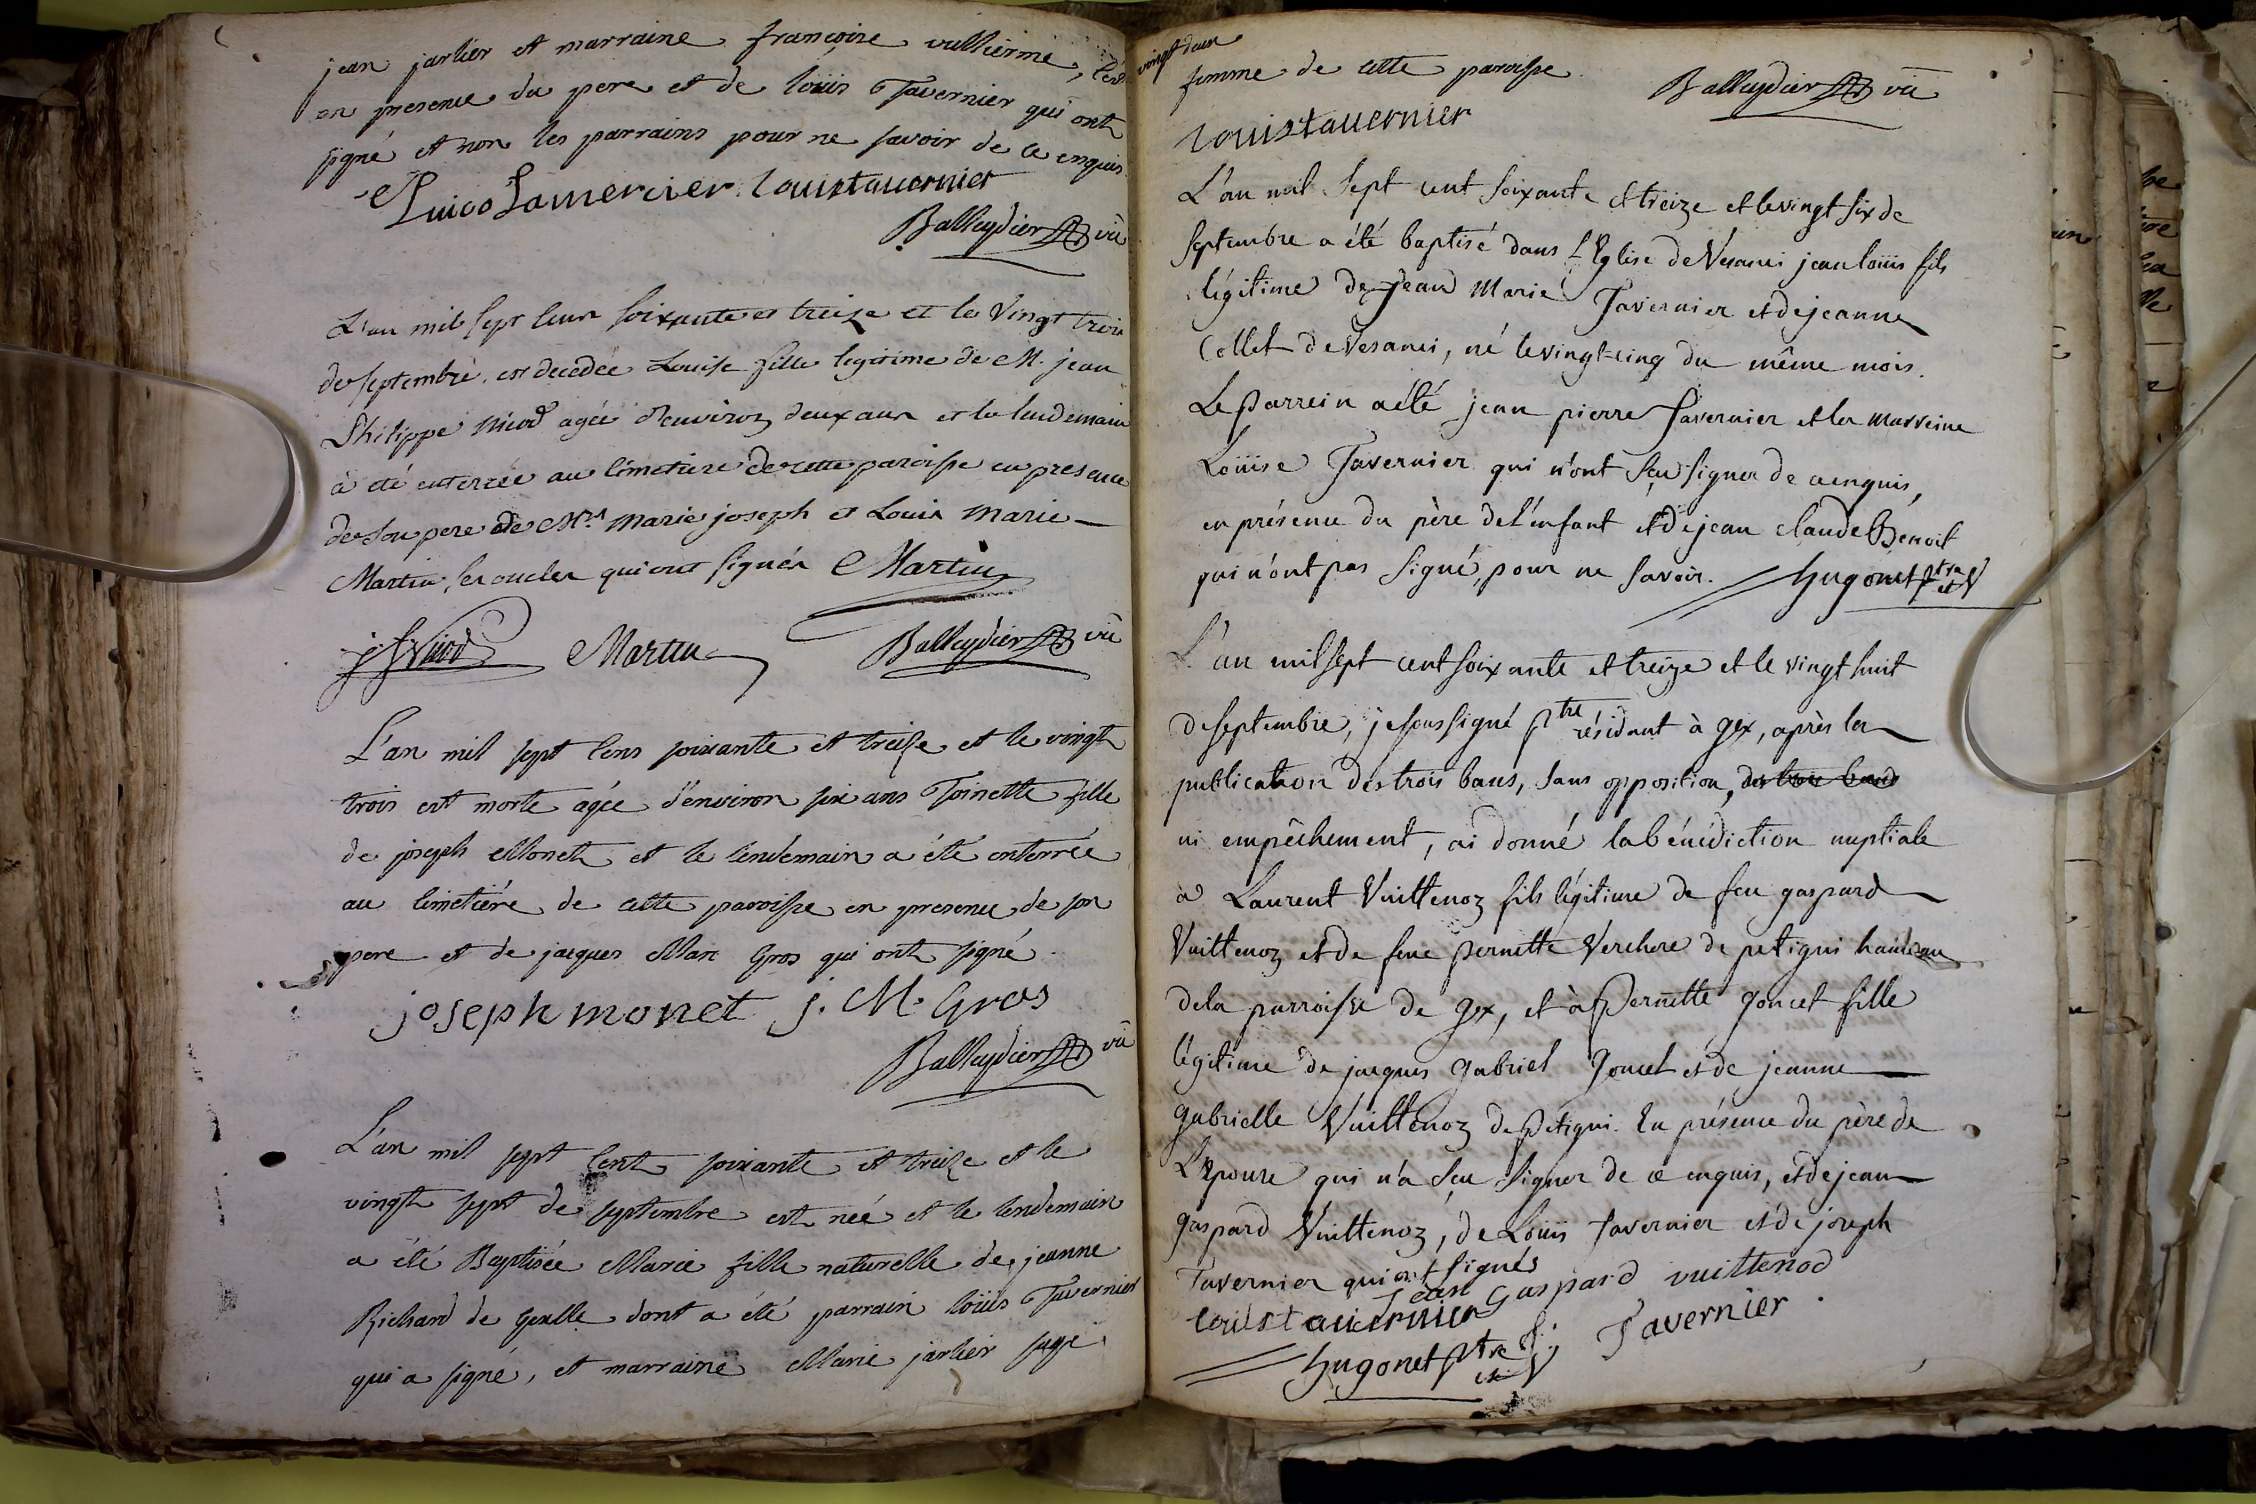 jean jarlier et marraine françoise vulliermé, le
vingt deux
en presence du pere et de loüis Tavernier qui ont
signé et non les parrains pour ne savoir de ce enquis
louis tavernier
Balleydier vic
L'an mil sept cens soixante et treize et le vingt trois
de septembre est decedée Louise fille legitime de M. jean
Philippe nicod agée d'environ deux ans et le lendemain
à été enterrée au cimetiere de cette paroisse en presence
de son pere de Mrs Marie joseph et Louis Marie
Martin ses oncles qui ont signés Martin
Nicod Martin Balleydier vic
L'an mil sept cens soixante et treize et le vingt
trois est morte agée d'environ six ans Toinette fille
de joseph Monet et le lendemain a été enterrée
au cimetiére de cette paroisse en presence de son
pere et de jacques Marc Gros qui ont signé
joseph monet j. M. Gros
Balleydier vic
L'an mil sept cent soixante et treize et le
vingt sept de septembre est née et le lendemain
a été Baptisée Marie fille naturelle de jeanne
Richard de Gexlle dont a été parrain loüis Tavernier
qui a signé, et marraine Marie jarlier sage
femme de cette paroisse Balleydier vic
louis tavernier
L'an mil sept cent soixante et treize et le vingt six de
septembre a été baptisé dans L'Eglise de Vesanci jean loüis fils
légitime de jean Marie Tavernier et de jeanne
Collet de Vesanci, né le vingt-cinq du même mois.
Le parrein a été jean pierre Tavernier et la marreine
Loüise Tavernier qui n'ont sçu signer de ce enquis,
en présence du père de l'enfant et de jean claude Benoit
qui n'ont pas signé, pour ne savoir. Hugonet ptre et V
L'an mil sept cent soixante et treize et le vingt huit
de septembre, je soussigné ptre résidant à gex, après la
publication des trois bans, sans opposition, des trois bans
ni empêchement, ai donné la bénédiction nuptiale
à Laurent Vuittenoz fils légitime de feu gaspard
Vuittenoz et de feue pernette Verchere de petigni hameau
de la parroisse de gex, et à Pernette goncet fille
légitime de jacques gabriel goncet et de jeanne
gabrielle Vuittenoz de petigni. En présence du père de
L'Epouse qui n'a sçu signer de ce enquis, et de jean
gaspard Vuittenoz, de Loüis Tavernier et de joseph
Tavernier qui ont signés
louis tavernier Jean Gaspard vuittenod
Hugonet ptre et V J. Tavernier